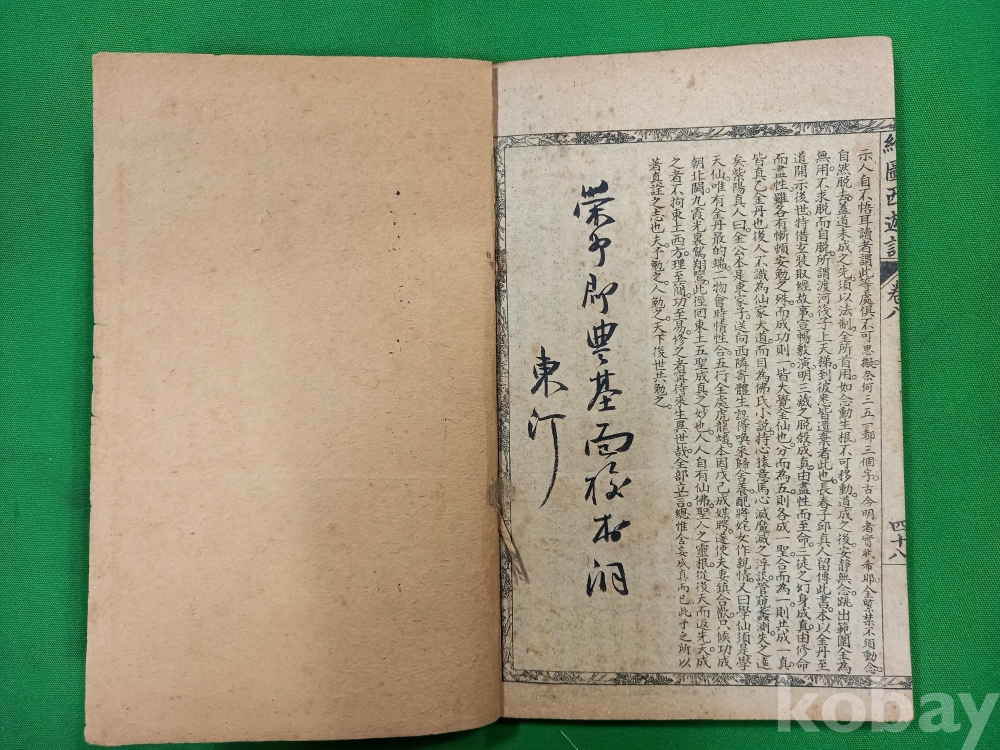 繪圖西遊記 卷八
四十八
示人自不悟耳讀者謂此等處俱不可思擬奈何三五一都三個字古今明者實然希耶全緊禁不須動念
自然脫去蓋道未成之先須以法制全所首用如念動生根不可移動道成之後安靜無念跳出範圍全為
無用不求脫而自脫所謂渡河筏子上天梯到彼悉皆遺棄者此也長春子邱真人留傳此書本以金丹至
道開示後世特借玄裝取經故事宣暢敷演明三藏之脫殼成真由盡性而至命三徒之幻身成真由修命
而盡性雖各有漸頓安勉之殊而成功則一皆大覺金仙也分而為五則各成一聖合而為一則共成一真
皆真乙金丹也後人不識為仙家大道而目為佛氏小說持心猿意馬心滅魔滅之浮談管窺蠡測失之遠
矣紫陽真人曰金公本是東家子送向西隣寄體生認得喚來歸舍養配將姹女作親情又曰學仙須是學
天仙唯有金丹最的端二物會時情性合五行全處虎龍蟠本因戊己成媒聘遂使夫妻鎮合歡只候功成
朝北闕九霞光裏駕翔鸞此徑回東土五聖成真之妙也人人自有仙佛聖人之靈根從後天而返先天成
之者不拘東土西方理至簡功至易修之者寗待來生與世哉全部立言總惟舍妄成真而已此予之所以
著真詮之志也夫予勉之人勉之天下後世共勉之
東汀
kobay